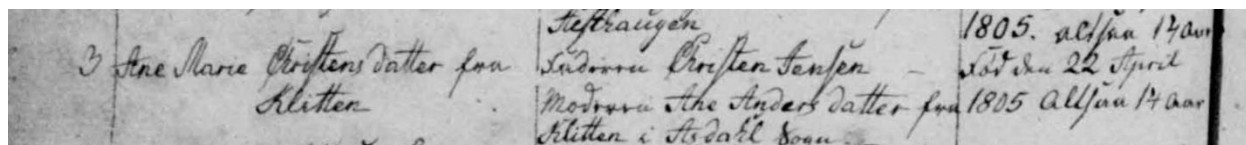 Hesthaugen
1805. altsaa 14 Aar
3 Ane Marie Christens datter fra
Klitten
Faderen Christen Jensen –
Moderen Ane Anders datter fra
Klitten i Asdahl Sogn
Fød den 22 April
1805 Altsaa 14 Aar